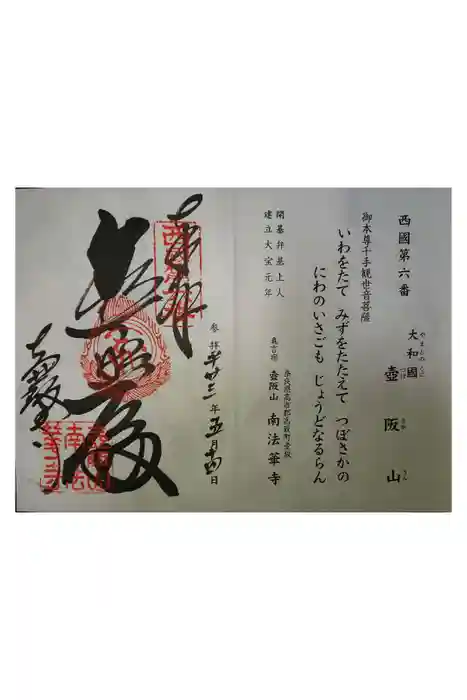 西國第六番
大和國 壺阪山
やまとのくに
つぼ さか さん
御本尊千手観世音菩薩
いわをたて みずをたたえて つぼさかの
にわのいさごも じょうどなるらん
奈良県高市郡高取町壷阪
真言宗 壺阪山 南法華寺
開基弁基上人
建立大宝元年
参拝 平廿三年五月 日
奉拝
南法華寺